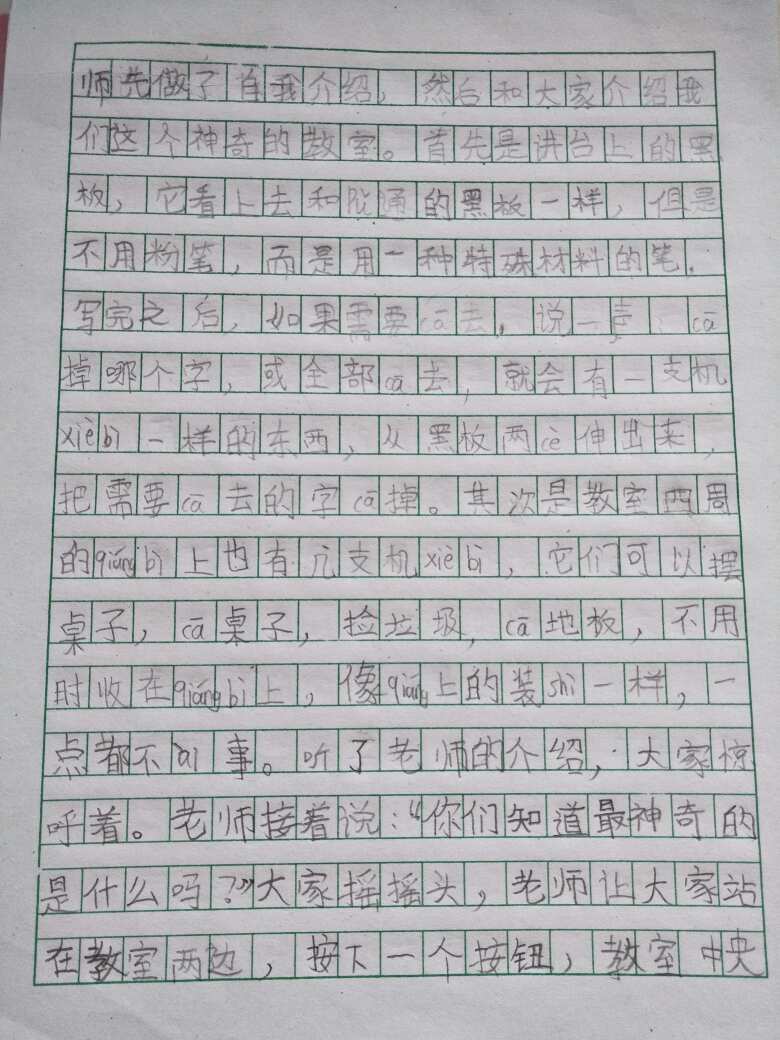 师先做了自我介绍，然后和大家介绍我
们这个神奇的教室。首先是讲台上的黑
板，它看上去和普通的黑板一样，但是
不用粉笔，而是用一种特殊材料的笔.
写完之后，如果需要cā去，说一声：cā
掉哪个字，或全部cā去，就会有一支机
xièbì一样的东西，从黑板两cè伸出来，
把需要cā去的字cā掉。其次是教室四周
的qiángbì上也有几支机xièbì，它们可以摆
桌子，cā桌子，捡垃圾，cā地板，不用
时收在qiángbì上，像qiáng上的装shì一样，一
点都不ài事。听了老师的介绍，大家惊
呼着。老师接着说：“你们知道最神奇的
是什么吗？”大家摇摇头，老师让大家站
在教室两边，按下一个按钮，教室中央